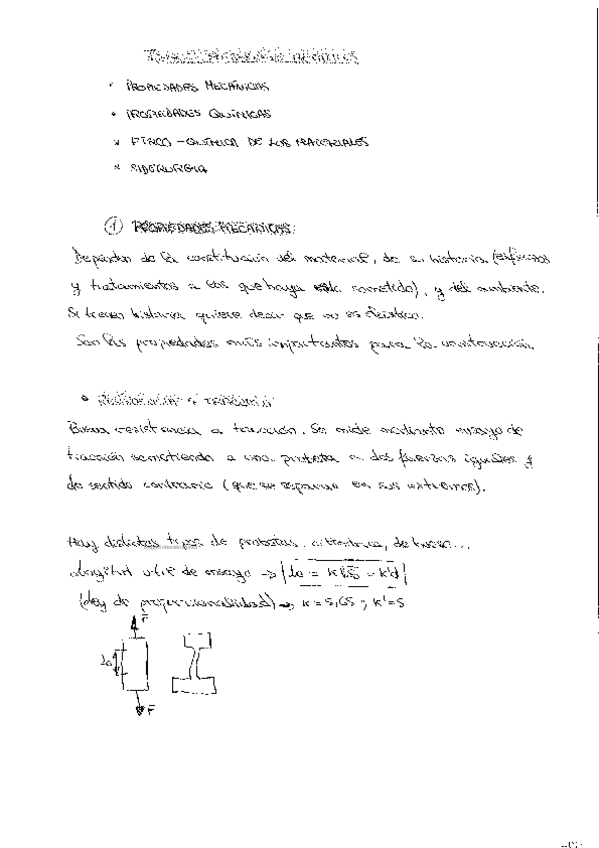 • PROPIEDADES MECÁNICAS
• PROPIEDADES QUÍMICAS
• FÍSICO-QUÍMICA DE LOS MATERIALES
• SIDERURGIA
① PROPIEDADES MECÁNICAS:
Dependen de la constitución del material, de su historia (esfuerzos
y tratamientos a los que haya sometido), y del ambiente.
Si tienen historia quiere decir que no es elástico.
Son las propiedades más importantes para la construcción.
•
Buena resistencia a tracción. Se mide mediante ensayo de
tracción sometiendo a una probeta a dos fuerzas iguales y
de sentido contrario (que se separan en sus extremos).
Hay distintos tipos de probetas: cilíndrica, de hueso...
Longitud útil de ensayo → l₀ = K√S = K'd
(Ley de proporcionalidad) → K = 5,65 ; K' = 5
F
l₀
F